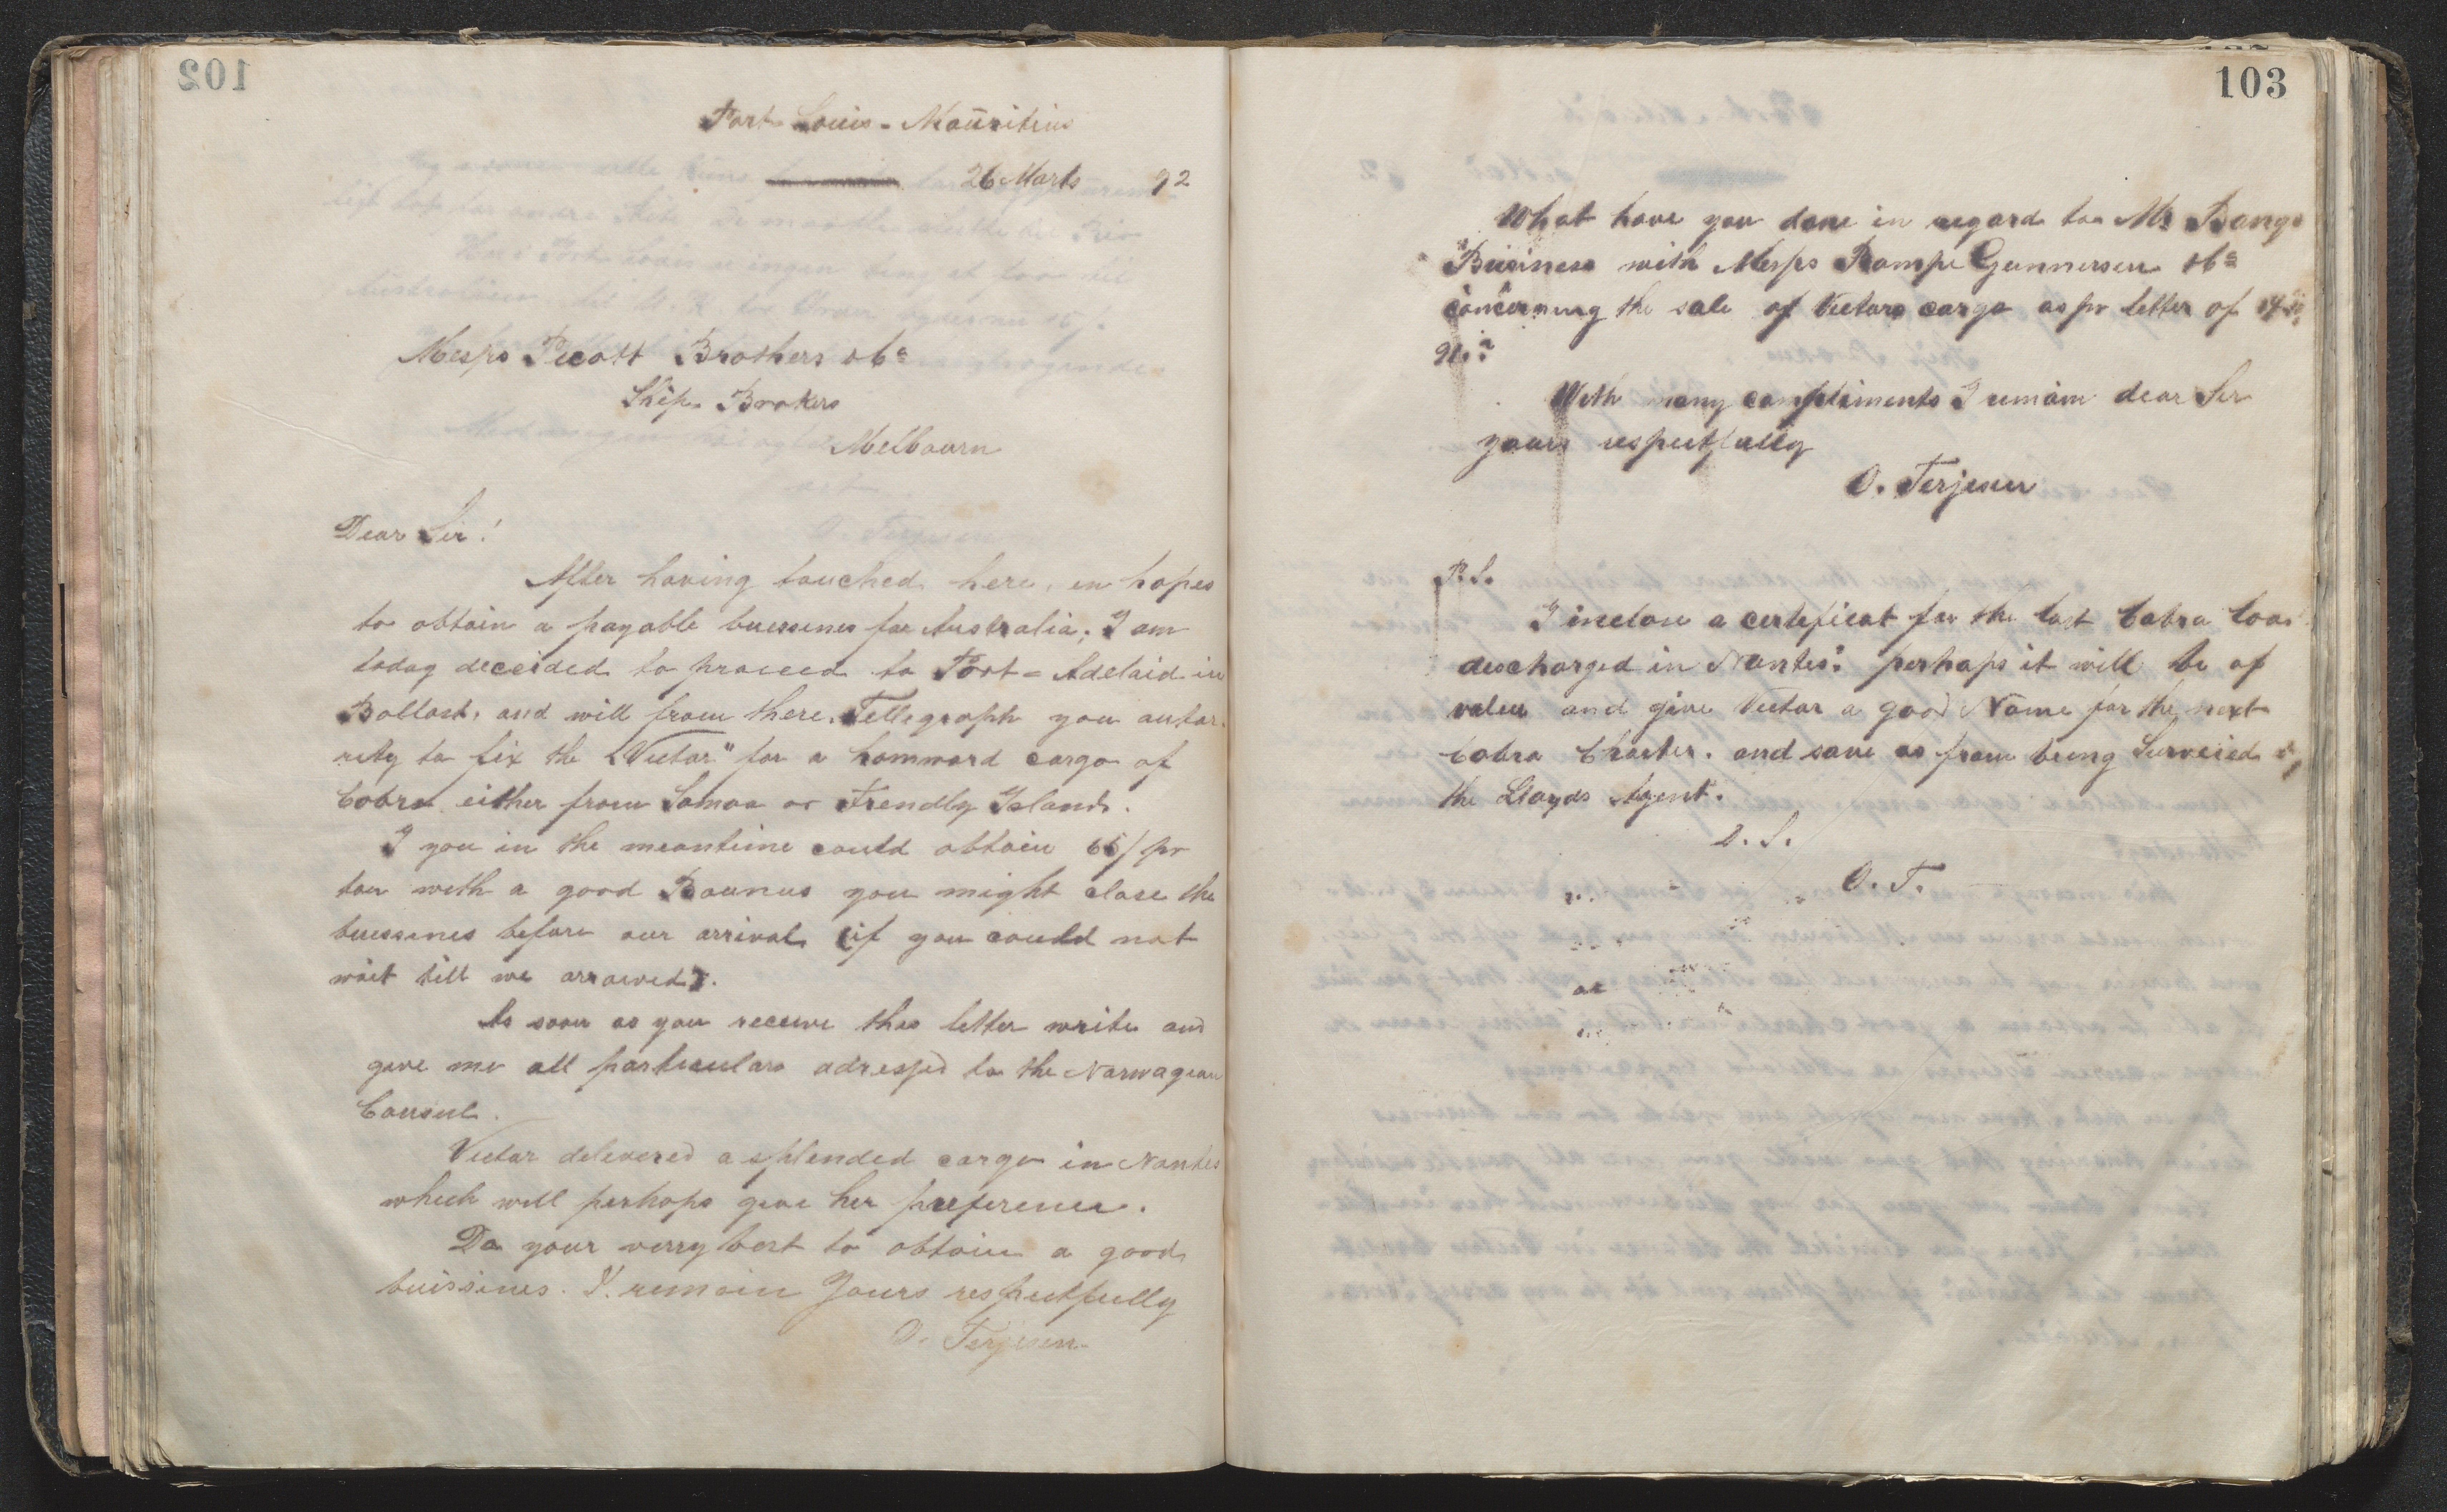 102
Port Louis - Mauritius
26 Marts 92
Messrs Picott Brothers &Co
Ship Brokers
Melbourn
Dear Sir!
After having touched here, in hopes
to obtain a payable buissines for Australia; I am
today deceided to proceed to Port-Adelaid in
Ballast, and will from there Tellegraph you autor
rity to fix the "Victor" for a homward cargo of
Cobra either from Samoa or Frendly Islands.
I you in the meantime could obtain 65/ pr
ton with a good Bounus you might close the
buissines before our arrival (if you could not
wait till we arraived).
As soon as you receive this letter write and
give me all particulars adressed to the Norwagian
Consul.
Victor delevered a splended cargo in Nantes
which will perhaps give her preference.
Do your verry best to obtain a good
buissines. I remain Yours respectfully
O. Terjesen
103
What have you done in regard too Mr Bangs
Buisiness with Messrs Rompe Gunnersen &Co
concerning the sale of Victors cargo as pr letter of
With many compliments I remain dear Sir
yours respectfully
O. Terjesen
P.S.
I inclose a certeficat for the last Cobra load
descharged in Nantes: perhaps it will be of
valeu and give Victor a good Name for the next
Cobra Charter. and save os from being Surveied by
the Lloyds Agent.
D. S.
O. T.